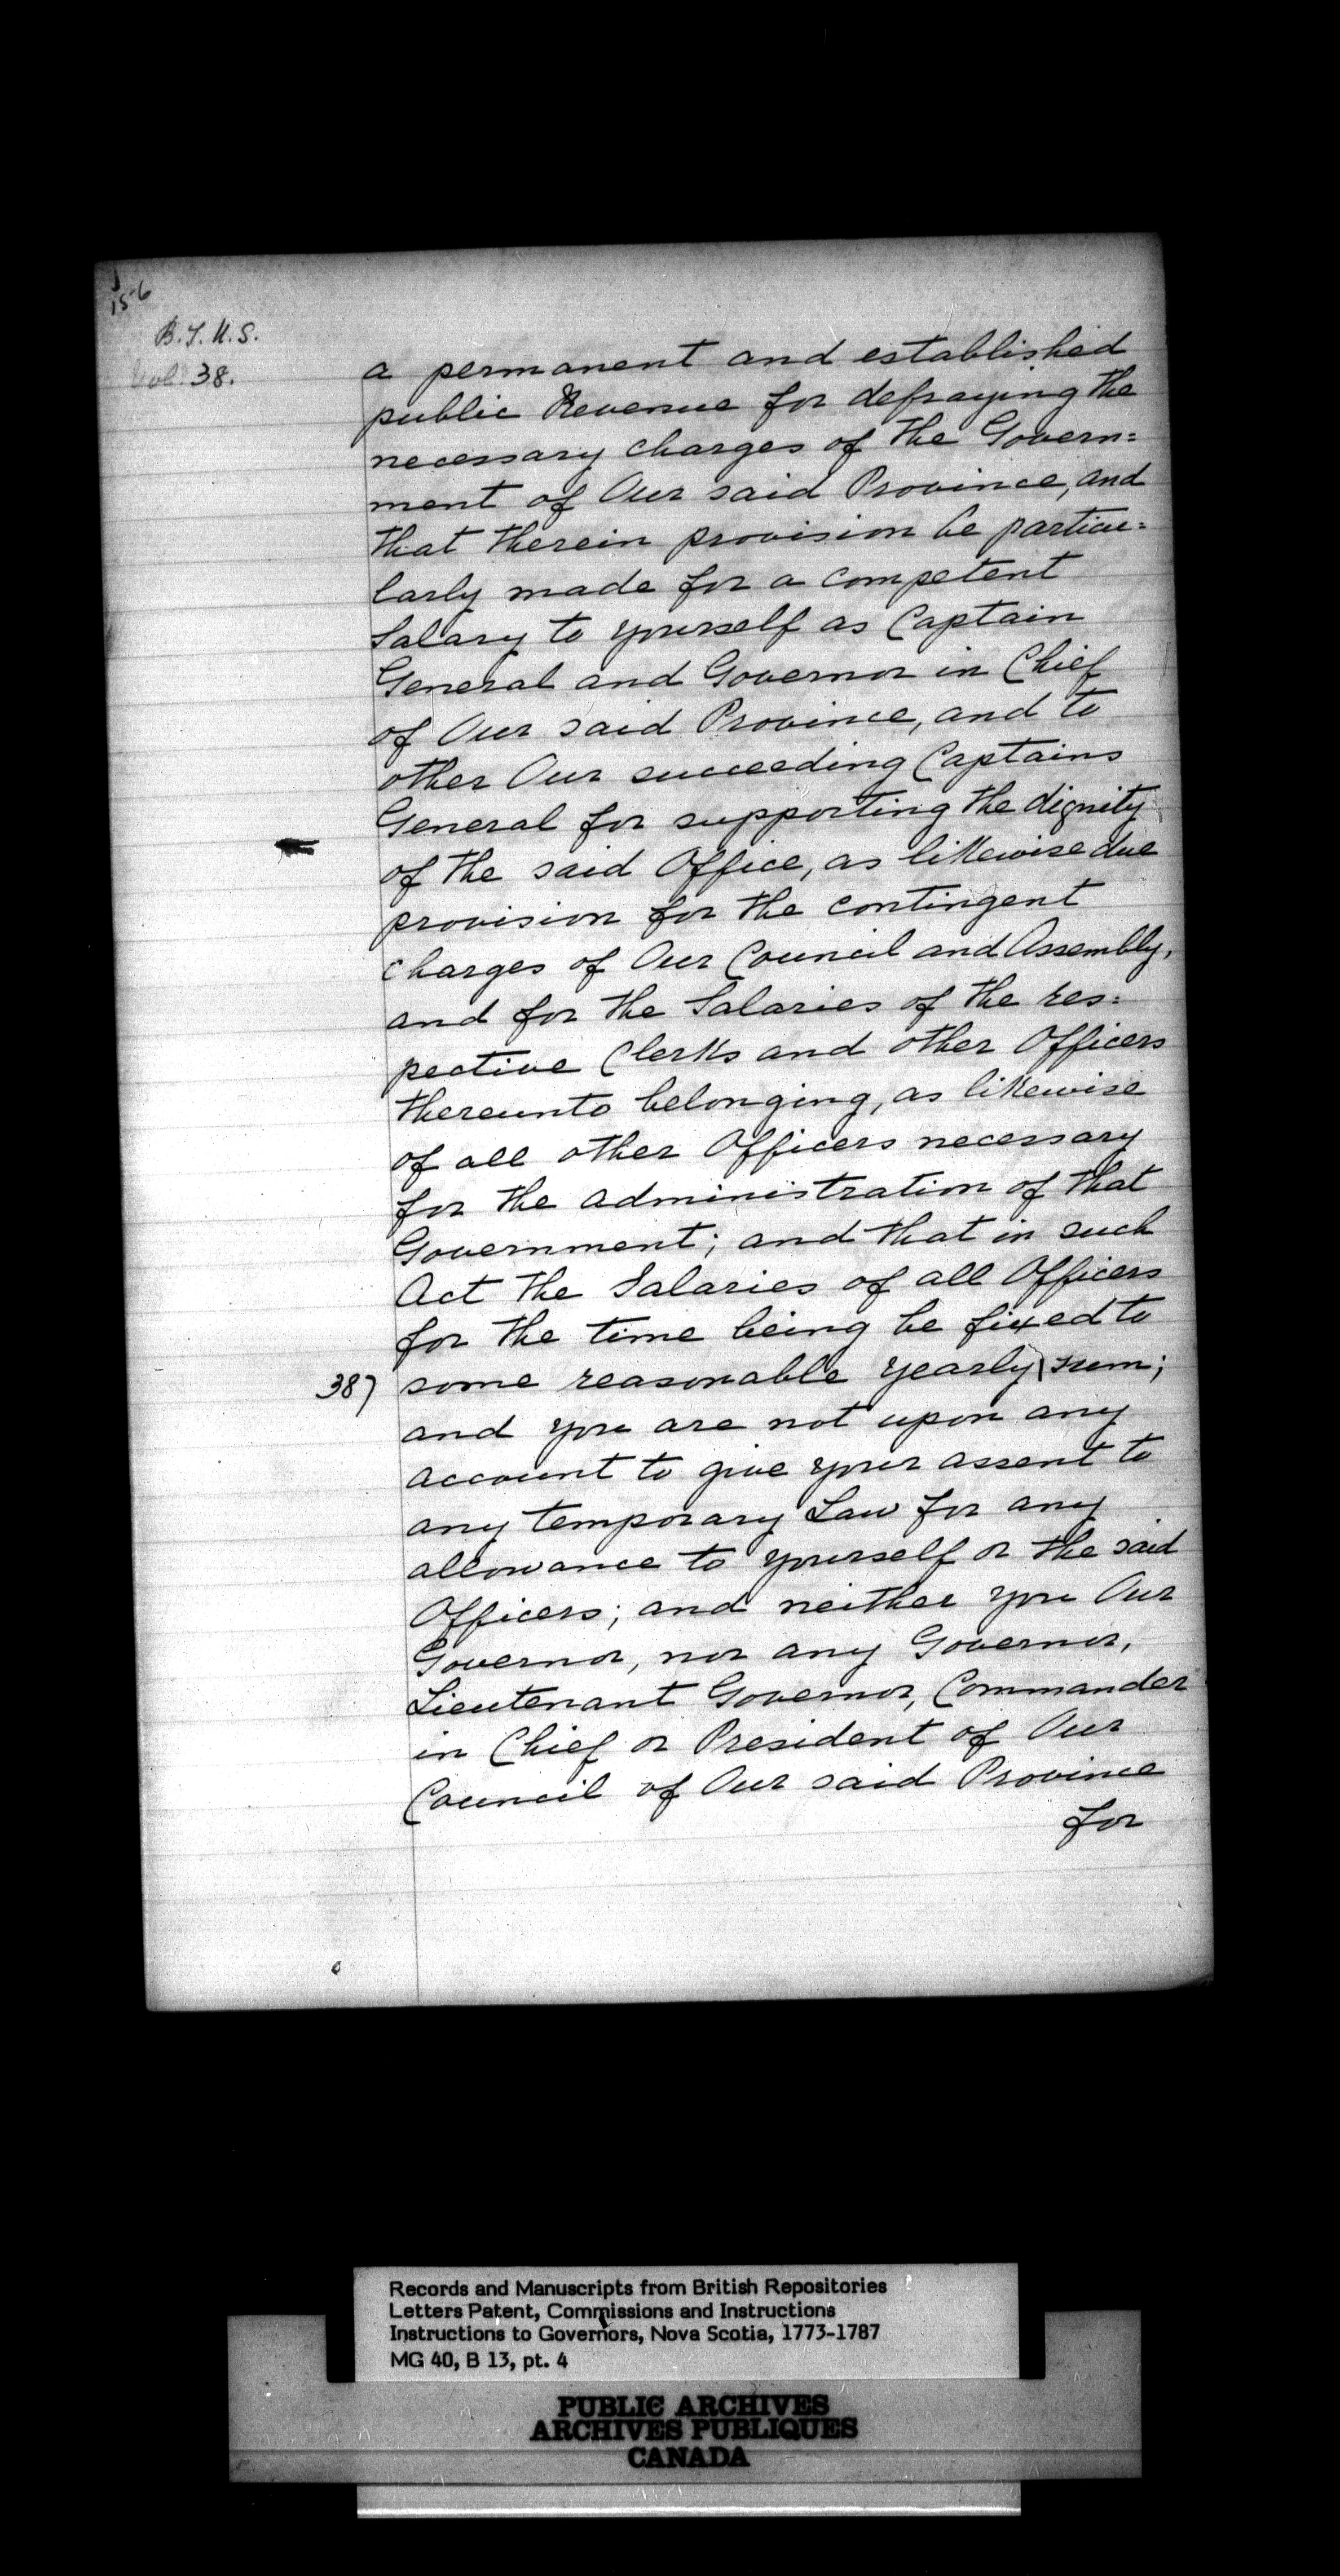 156
B.T.N.S.
Vol. 38.
a permanent and established
public Revenue for defraying the
necessary charges of the Govern=
ment of Our said Province, and
that therein provision be particu=
larly made for a competent
Salary to yourself as Captain
General and Governor in Chief
of Our said Province, and to
other Our succeeding Captains
General for supporting the dignity
of the said Office, as likewise due
provision for the contingent
charges of Our Council and Assembly,
and for the Salaries of the res=
pective Clerks and other Officers
thereunto belonging, as likewise
of all other Officers necessary
for the administration of that
Government; and that in such
Act the Salaries of all Officers
for the time being be fixed to
38) some reasonable yearly sum;
and you are not upon any
account to give your assent to
any temporary Law for any
allowance to yourself or the said
Officers; and neither you Our
Governor, nor any Governor,
Lieutenant Governor, Commander
in Chief or President of Our
Council of Our said Province
for
Records and Manuscripts from British Repositories
Letters Patent, Commissions and Instructions
Instructions to Governors, Nova Scotia, 1773-1787
MG 40, B 13, pt. 4
PUBLIC ARCHIVES
ARCHIVES PUBLIQUES
CANADA